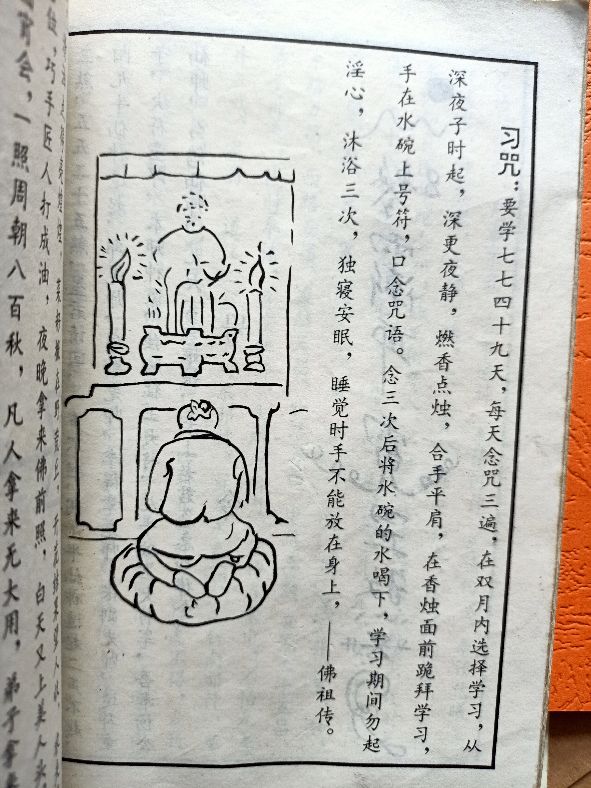 习咒：要学七七四十九天，每天念咒三遍，在双月内选择学习，从
深夜子时起，深更夜静，燃香点烛，合手平肩，在香烛面前跪拜学习，
手在水碗上号符，口念咒语。念三次后将水碗的水喝下，学习期间勿起
淫心，沐浴三次，独寝安眠，睡觉时手不能放在身上，——佛祖传。
巧手匠人打成油，夜晚拿来佛前照，白天又上美人头
会，一照周朝八百秋，凡人拿来无大用，弟子拿来